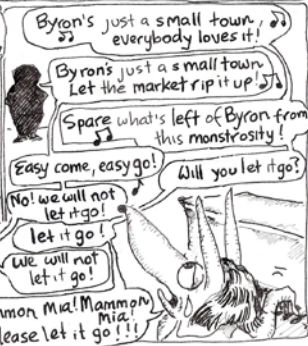 Byron's just a small town,
everybody loves it!
Byron's just a small town
Let the market rip it up!
Spare what's left of Byron from
this monstrosity!
Easy come, easy go!
Will you let it go?
No! we will not
let it go!
let it go!
We will not
let it go!
mmon Mia! Mammon
Mia!
lease let it go!!!